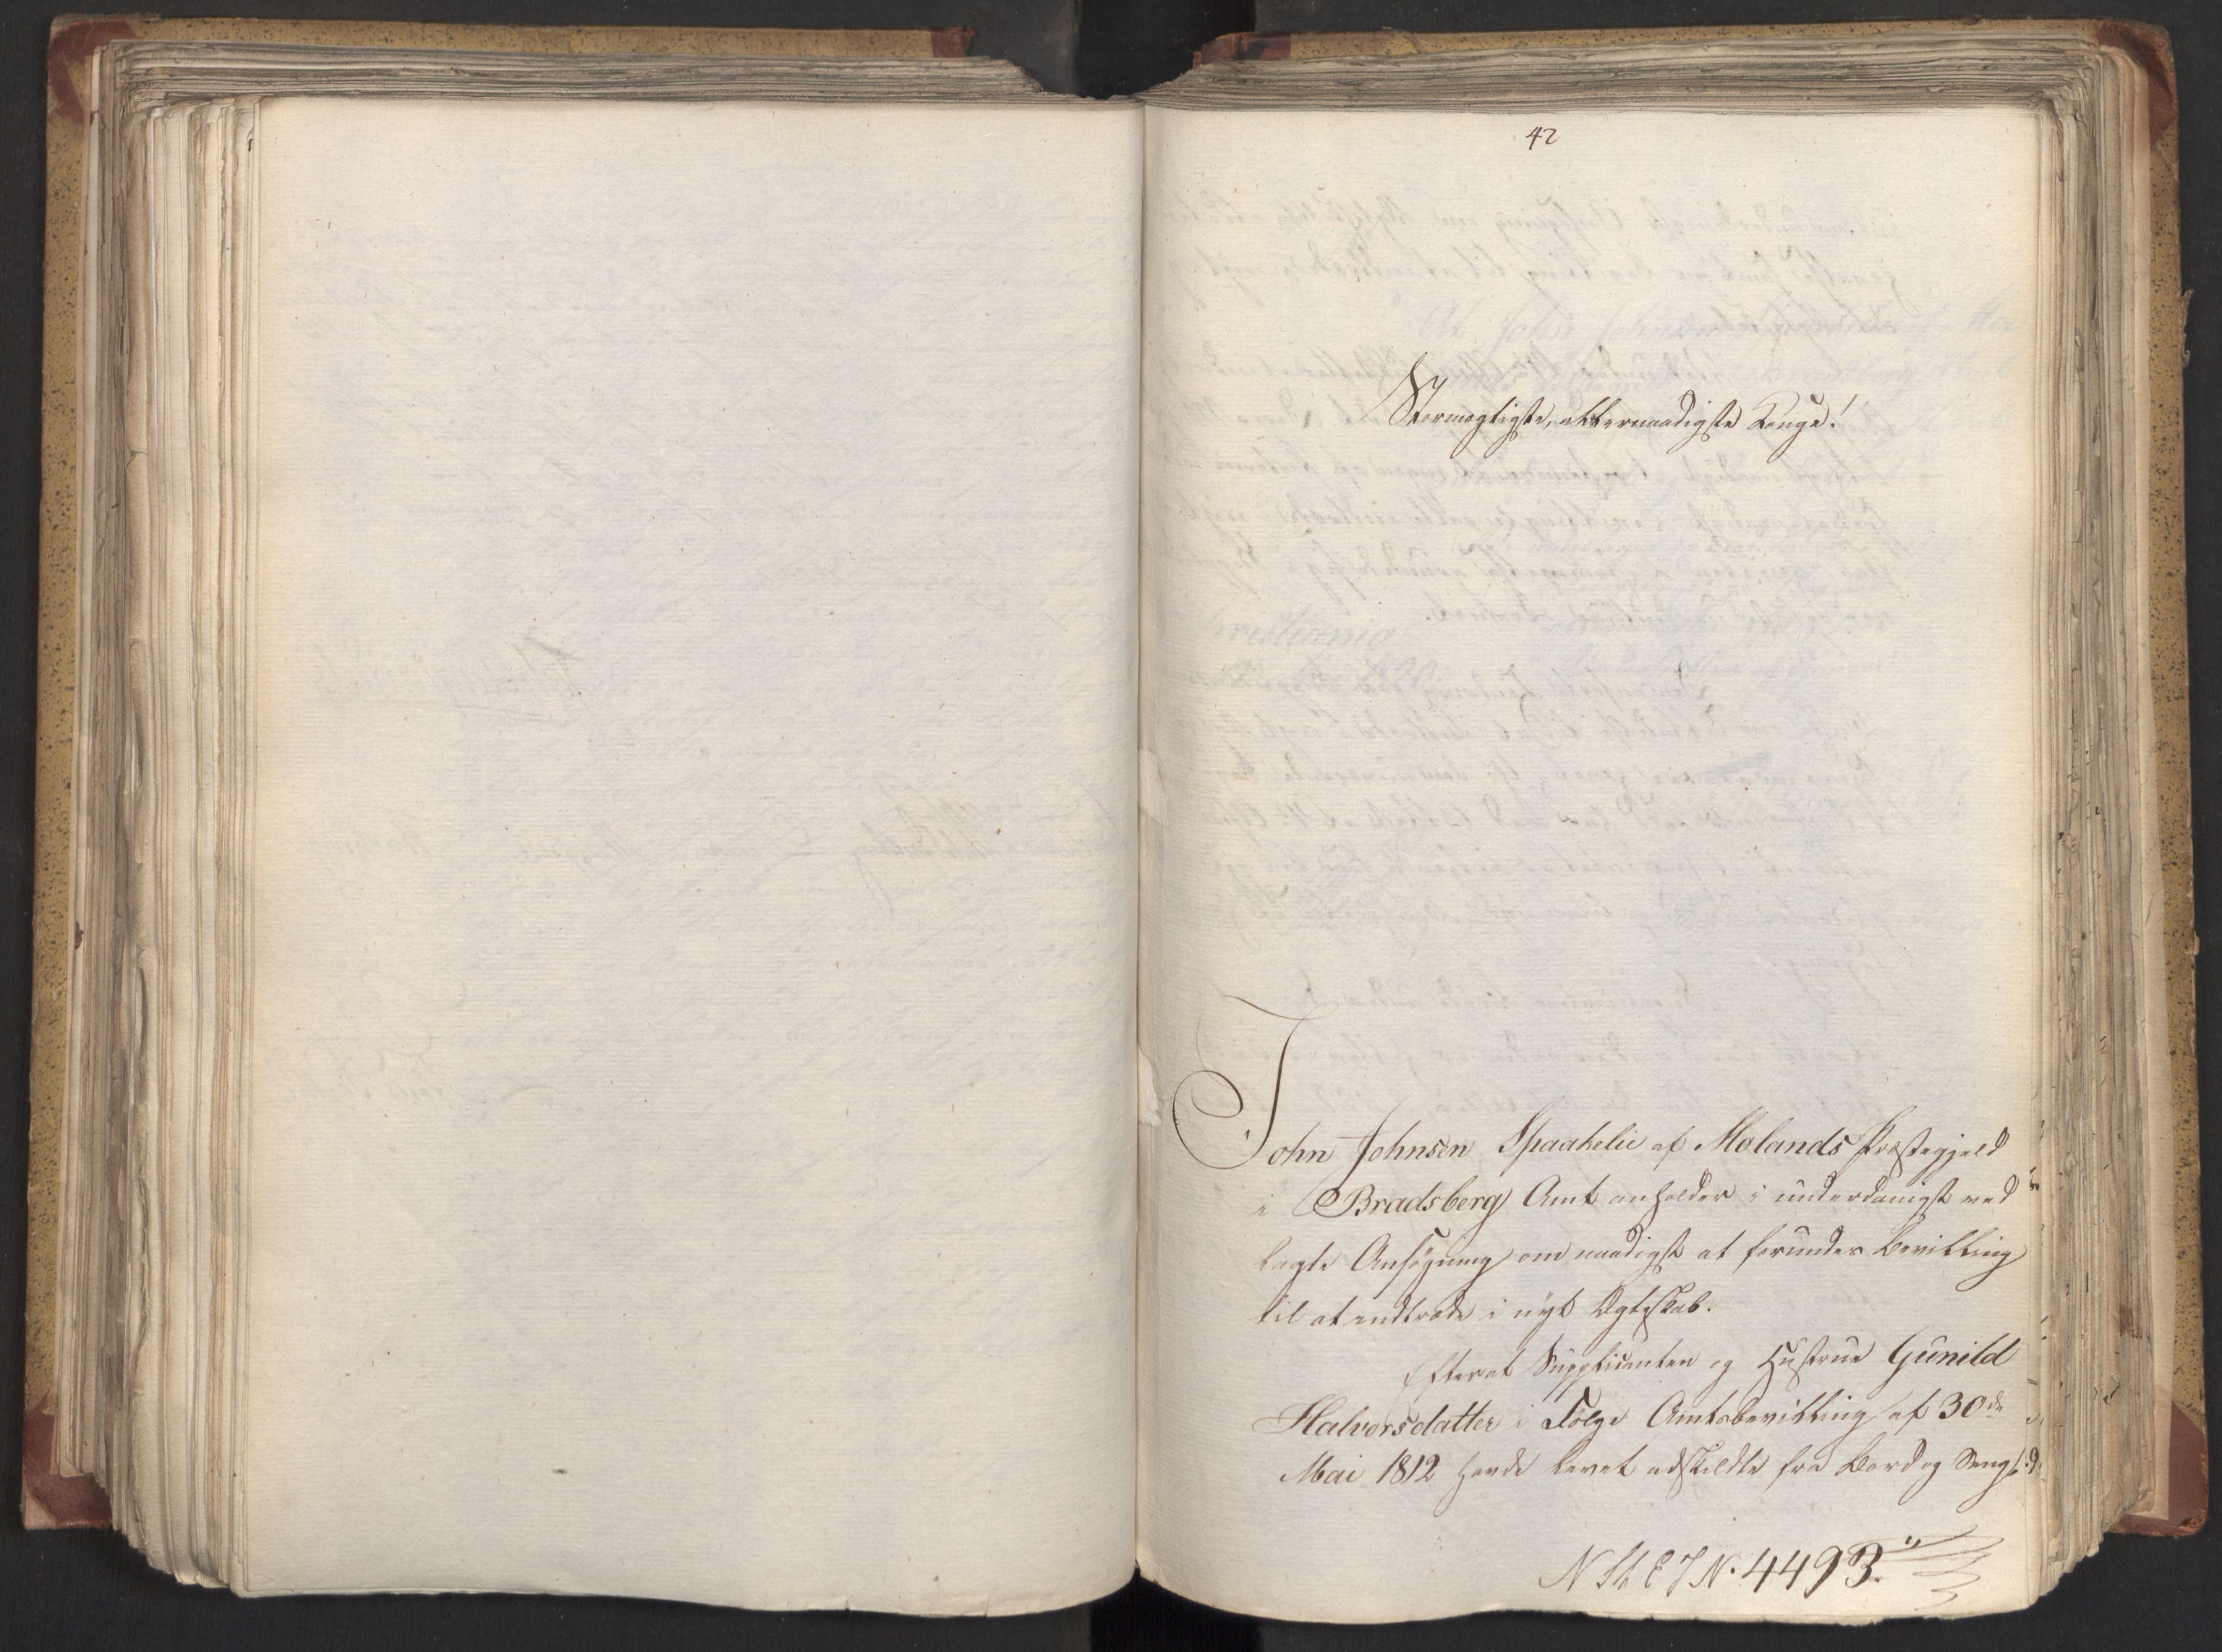 42
Stormægtigste, allernaadigste Konge!
John Johnsen Spaakelie af Molands Præstegjeld
i Bradsberg Amt anholder i underdanigst ved
lagte Ansøgning om naadigst at forundes Bevilling
til at indtræde i nyt Ægteskab.
Efterat Supplicanten og Hustrue Gunild
Halvorsdatter i Følge Amtsbevilling af 30de
Mai 1812 havde levet adskildte fra Bord og Seng
N St E J N. 4493.